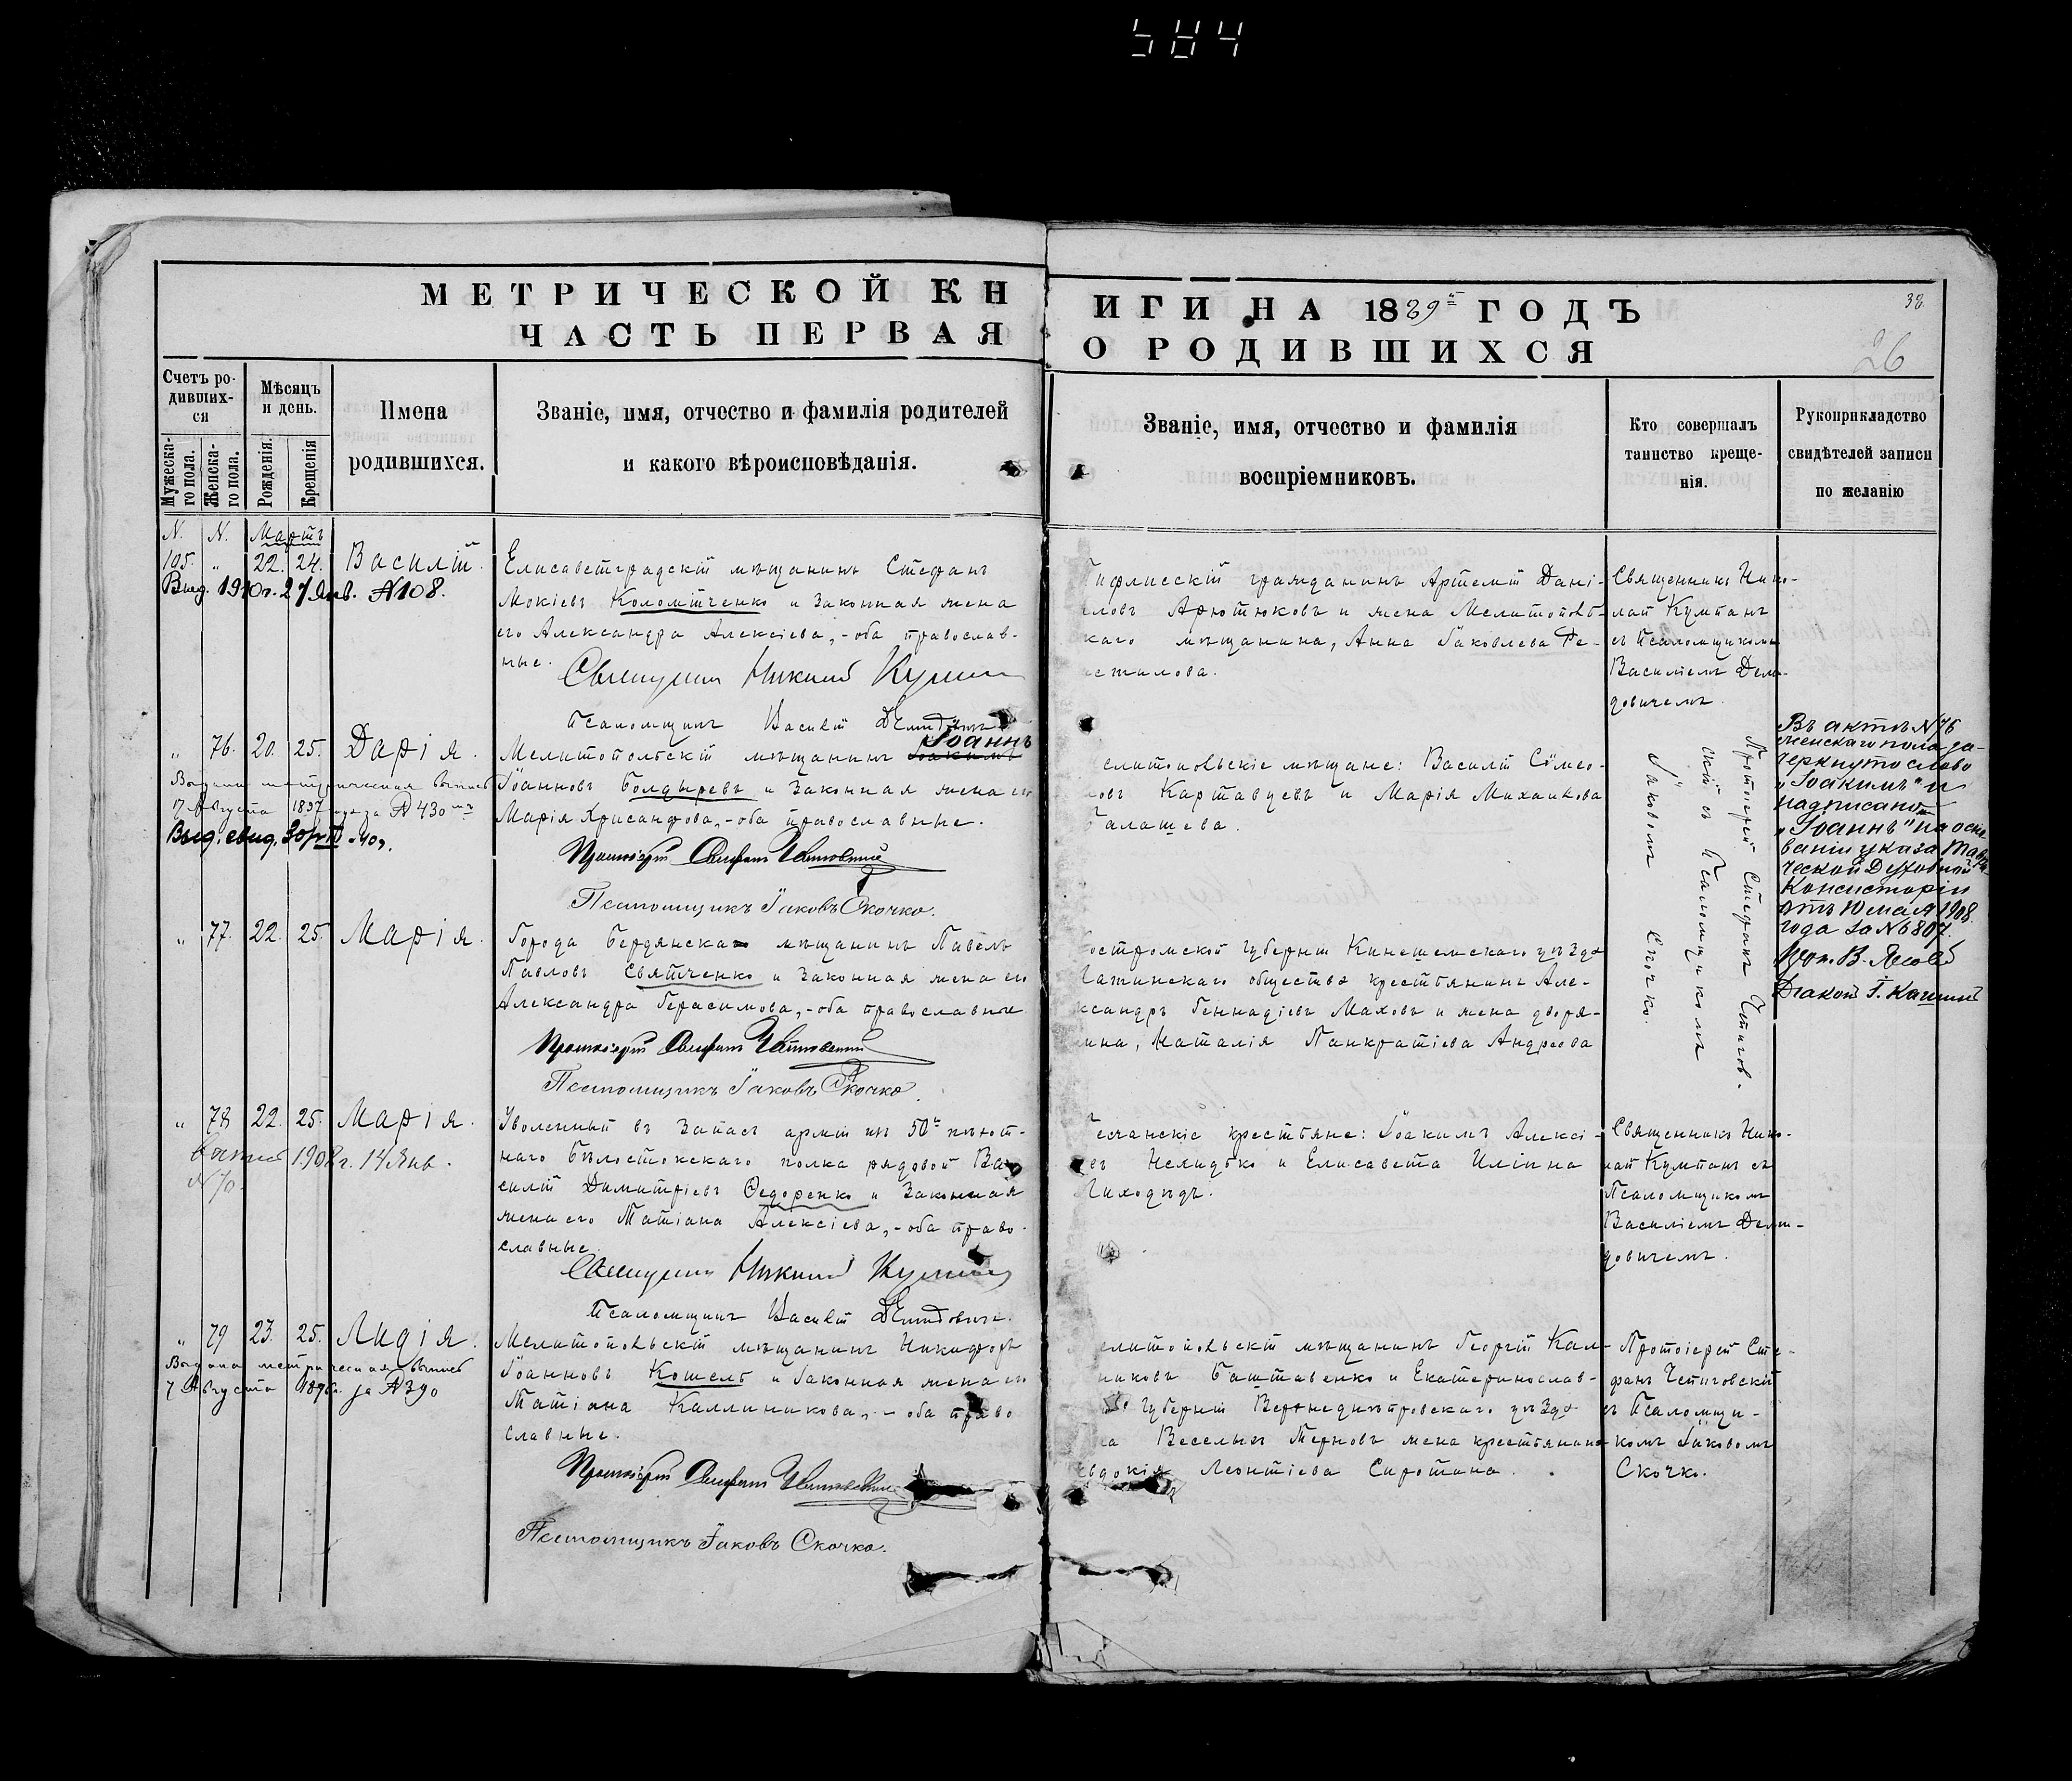 584
МЕТРИЧЕСКОЙ КНИГИ НА 1889й ГОДЪ
ЧАСТЬ ПЕРВАЯ О РОДИВШИХСЯ
38
26
Счетъ ро-
дивших-
ся
Мужеска-
го пола.
Женска-
го пола.
Мѣсяцъ
и день.
Рожденія.
Крещенія
Имена
родившихся.
Званіе, имя, отчество и фамилія родителей
и какого вѣроисповѣданія.
Званіе, имя, отчество и фамилія
воспріемниковъ.
Кто совершалъ
таинство креще-
нія.
Рукоприкладство
свидѣтелей записи
по желанію
N. N. Мартъ
105. " 22. 24. Василій.
Выд. 1910 г. 27 Янв. №108.
Елисаветградскій мѣщанинъ Стефанъ
Мокіевъ Коломійченко и законная жена
его Александра Алексіева, - оба православ-
ные.
Священникъ Николай
Псаломщикъ Василій Демидовичъ
Тифлисскій гражданинъ Артемій Даніи-
ловъ Арютюковъ и жена Мелитополь-
каго мѣщанина, Анна Іаковлева
Священникъ Нико-
лай Кумпанъ
съ Псаломщикомъ
Василіемъ Деми-
довичемъ.
" 76. 20. 25. Дарія.
Выдана метрическая выпись
17 Августа 1897 года за №430мъ
Выд. свид.
Іоаннъ
Мелитопольскій мѣщанинъ Іоакимъ
Іоанновъ Болдыревъ и законная жена его
Марія Хрисанфова, - оба православные.
Протоіерей Стефанъ
Псаломщикъ Іаковъ Скочко.
елитопольскіе мѣщане: Василій Сѵмео-
новъ Картавцевъ и Марія Михаилова
Балашева.
Протоіерей Стефанъ Чепигов-
скій съ Псаломщикомъ
Іаковомъ Скочко.
Въ актѣ №76
женскаго пола за-
черкнуто слово
„Іоакимъ" и
надписано
„Іоаннъ" на осно-
ваніи указа Таври-
ческой Духовной
Консисторіи
отъ 10 мая 1908
года за №6807.
Діаконъ
" 77. 22. 25. Марія.
Города Бердянска мѣщанинъ Павелъ
Павловъ Святченко и законная жена его
Александра Герасимова, - оба православные
Протоіерей Стефанъ
Псаломщикъ Іаковъ Скочко.
остромской губерніи Кинешемскаго уѣзда
общества крестьянинъ Але-
ксандръ Геннадіевъ Маховъ и жена дворя-
нина, Наталія Панкратіева Андреева
" 78 22. 25. Марія.
1908 г. 14 Янв.
№70.
Уволенный въ запасъ арміи изъ 50й пѣхот-
наго Бѣлостокскаго полка рядовой Ва-
силій Димитріевъ Ѳедоренко и законная
жена его Татіана Алексіева, - оба право-
славные.
Священникъ Николай
Псаломщикъ Василій Демидовичъ.
Песчанскіе крестьяне: Іоакимъ Алексі-
евъ Неяидко и Елисавета Иліина
Лиходѣдъ.
Священникъ Нико-
лай Кумпанъ съ
Псаломщикомъ
Василіемъ Деми-
довичемъ.
" 79 23. 25. Лидія.
Выдана метрическая выпись
7 Августа 1896г. за №390
Мелитопольскій мѣщанинъ Никифоръ
Іоанновъ Кошель и законная жена его
Татіана Каллиникова, - оба право
славные.
Протоіерей Стефанъ
Псаломщикъ Іаковъ Скочко.
елитопольскій мѣщанинъ Георгій Кал-
никовъ Баштавенко и Екатеринослав-
губерніи Верхнеднѣпровскаго уѣзда
Веселыхъ Терновъ жена крестьянина
Евдокія Леонтіева Сиротина.
Протоіерей Сте-
фанъ Чепиговскій
съ Псаломщи-
комъ Іаковомъ
Скочко.